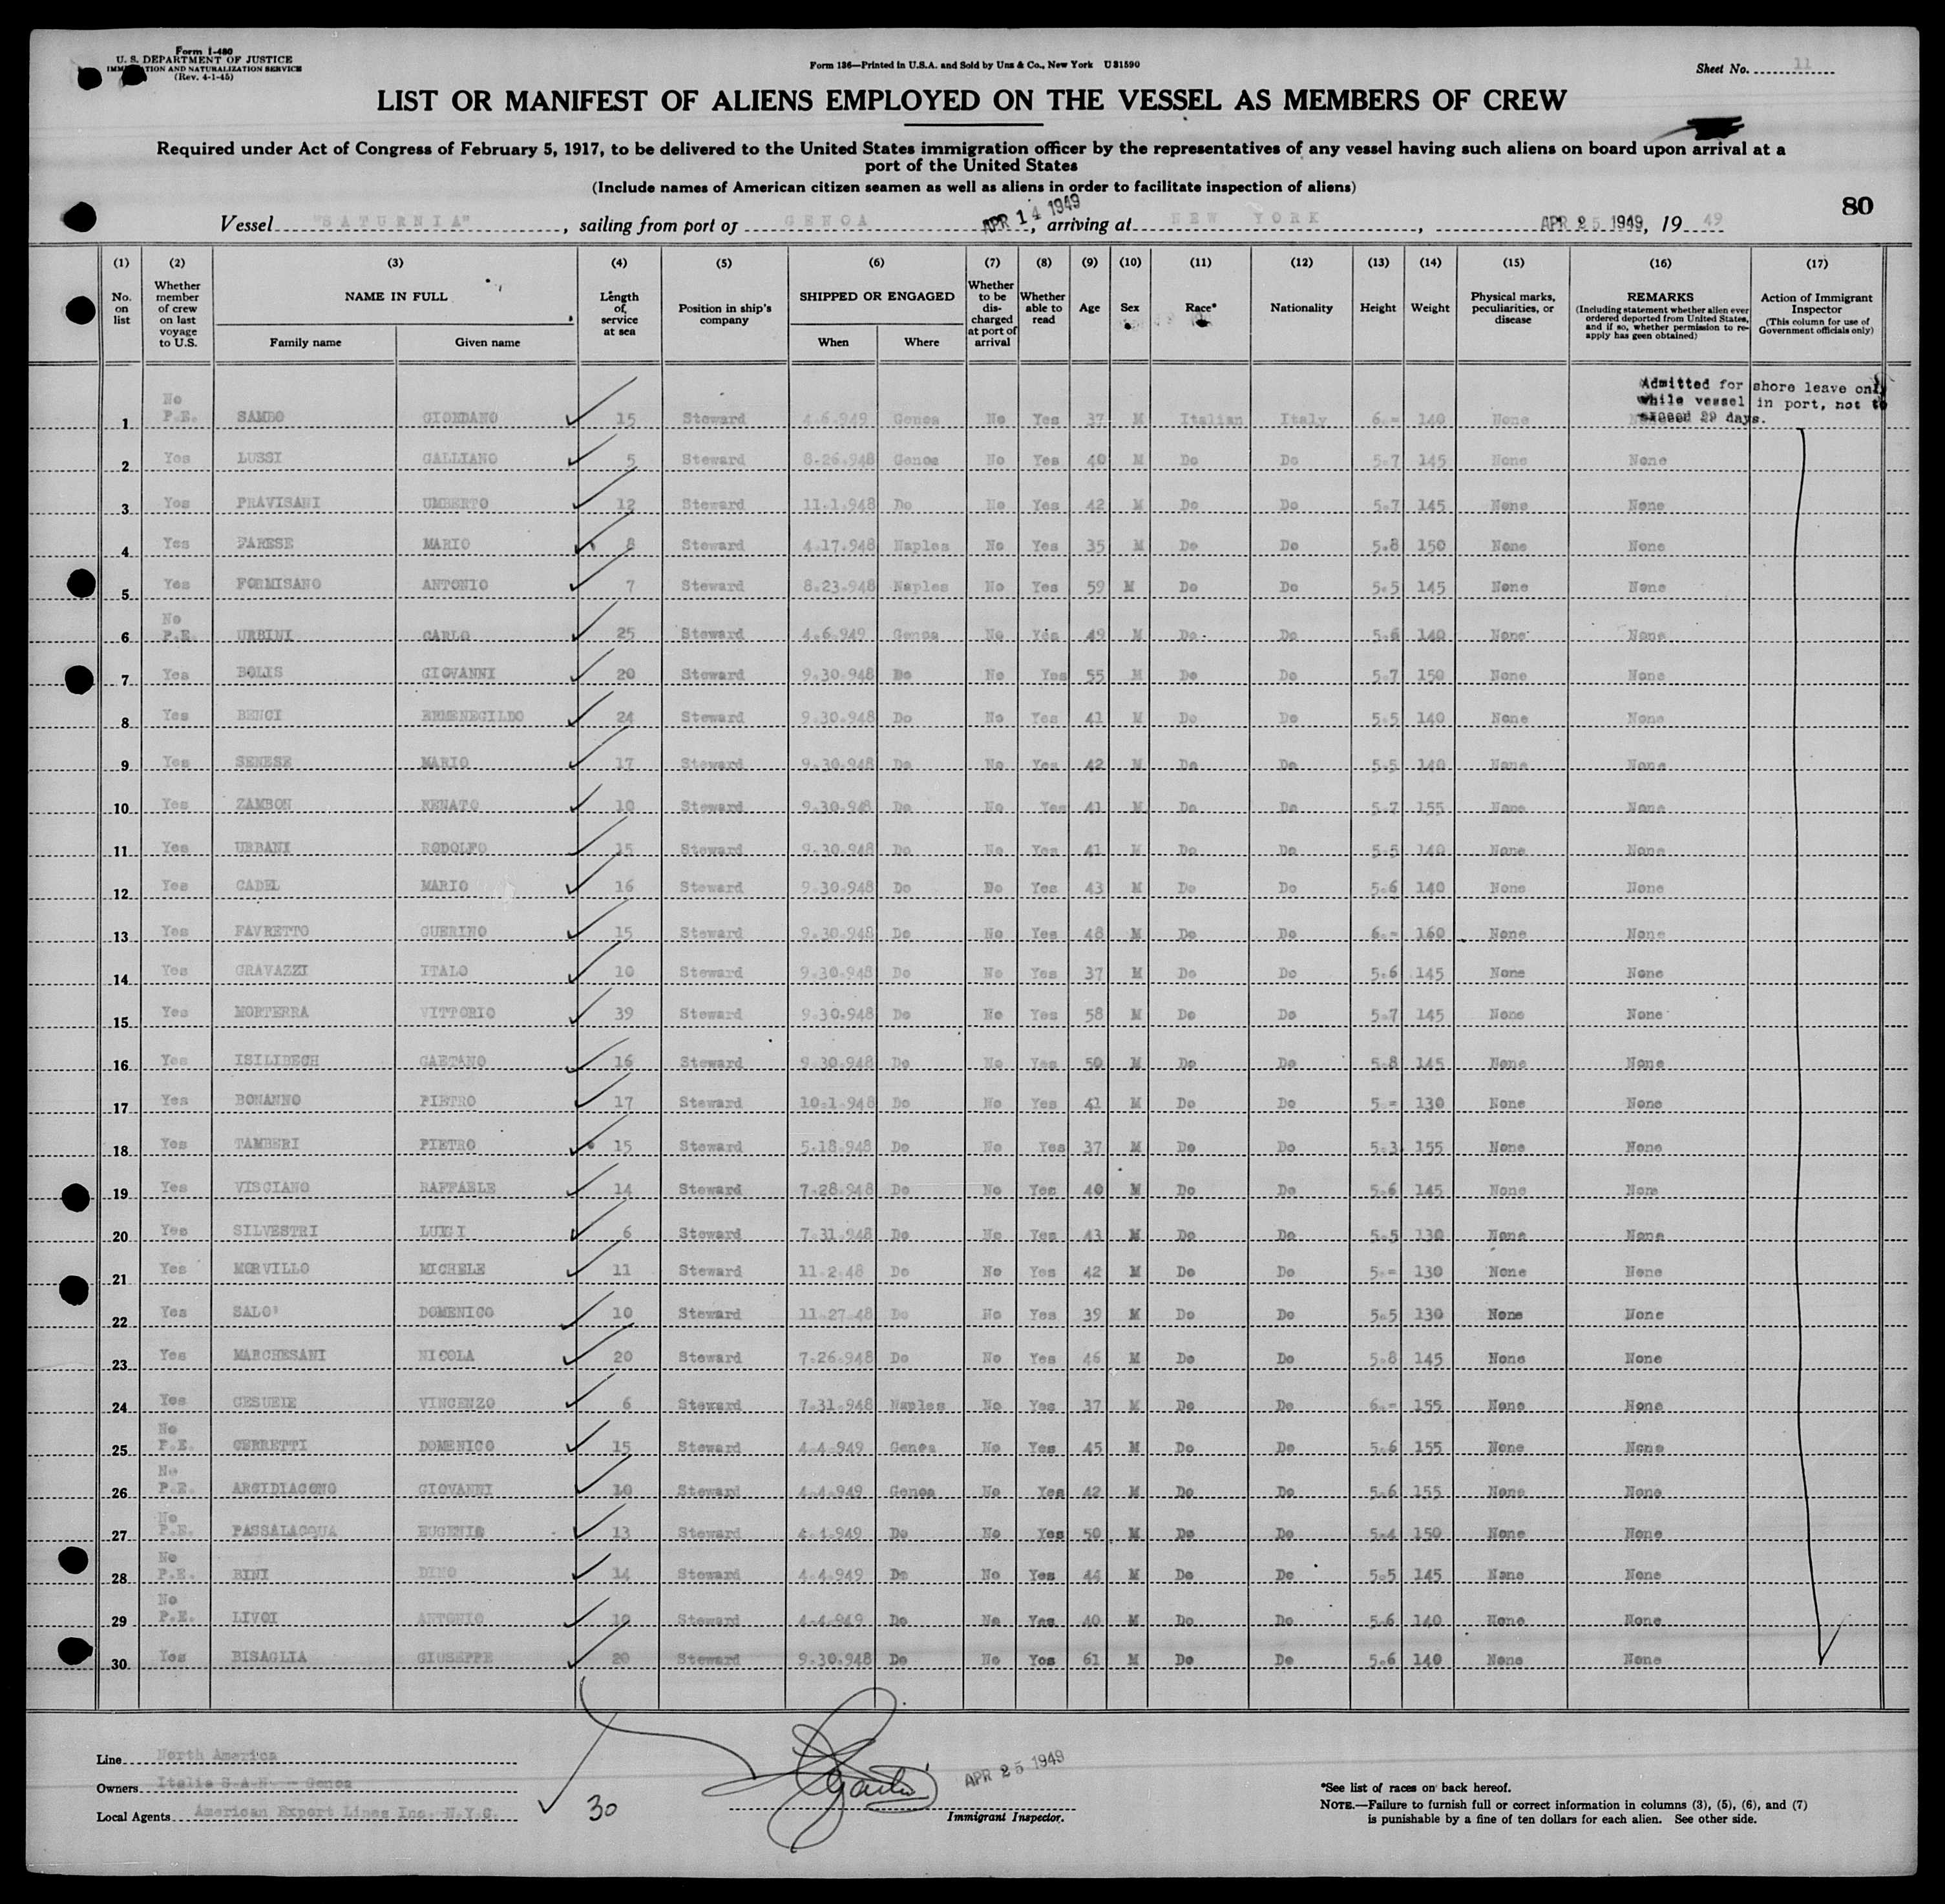 Form I-480
U. S. DEPARTMENT OF JUSTICE
IMMIGRATION AND NATURALIZATION SERVICE
(Rev. 4-1-45)
Form 136—Printed in U.S.A. and Sold by Unz & Co., New York U 31590
Sheet No. 11
LIST OR MANIFEST OF ALIENS EMPLOYED ON THE VESSEL AS MEMBERS OF CREW
Required under Act of Congress of February 5, 1917, to be delivered to the United States immigration officer by the representatives of any vessel having such aliens on board upon arrival at a
port of the United States
(Include names of American citizen seamen as well as aliens in order to facilitate inspection of aliens)
80
Vessel "SATURNIA", sailing from port of GENOA APR 14 1949, arriving at NEW YORK, APR 25 1949, 19 49
(1) (2) (3) (4) (5) (6) (7) (8) (9) (10) (11) (12) (13) (14) (15) (16) (17)
No. on list
Whether member of crew on last voyage to U.S.
NAME IN FULL
Family name
Given name
Length of service at sea
Position in ship's company
SHIPPED OR ENGAGED
When
Where
Whether to be discharged at port of arrival
Whether able to read
Age
Sex
Race*
Nationality
Height
Weight
Physical marks, peculiarities, or disease
REMARKS
(Including statement whether alien ever ordered deported from United States, and if so, whether permission to re-apply has geen obtained)
Action of Immigrant Inspector
(This column for use of Government officials only)
Admitted for shore leave only
while vessel in port, not to
exceed 29 days.
1 No P.E. SAMBO GIORDANO 15 Steward 4.6.949 Genoa No Yes 37 M Italian Italy 6.- 140 None
2 Yes LUSSI GALLIANO 5 Steward 8.26.948 Genoa No Yes 40 M Do Do 5.7 145 None None
3 Yes PRAVISANI UMBERTO 12 Steward 11.1.948 Do No Yes 42 M Do Do 5.7 145 None None
4 Yes FARESE MARIO 8 Steward 4.17.948 Naples No Yes 35 M Do Do 5.8 150 None None
5 Yes FORMISANO ANTONIO 7 Steward 8.23.948 Naples No Yes 59 M Do Do 5.5 145 None None
6 No P.E. URBINI CARLO 25 Steward 4.6.949 Genoa No Yes 49 M Do Do 5.6 140 None None
7 Yes BOLIS GIOVANNI 20 Steward 9.30.948 Do No Yes 55 M Do Do 5.7 150 None None
8 Yes BENCI ERMENEGILDO 24 Steward 9.30.948 Do No Yes 41 M Do Do 5.5 140 None None
9 Yes SENESE MARIO 17 Steward 9.30.948 Do No Yes 42 M Do Do 5.5 140 None None
10 Yes ZAMBON RENATO 10 Steward 9.30.948 Do No Yes 41 M Do Do 5.7 155 None None
11 Yes URBANI RODOLFO 15 Steward 9.30.948 Do No Yes 41 M Do Do 5.5 140 None None
12 Yes CADEL MARIO 16 Steward 9.30.948 Do Do Yes 43 M Do Do 5.6 140 None None
13 Yes FAVRETTO GUERINO 15 Steward 9.30.948 Do No Yes 48 M Do Do 6.- 160 None None
14 Yes GRAVAZZI ITALO 10 Steward 9.30.948 Do No Yes 37 M Do Do 5.6 145 None None
15 Yes MORTERRA VITTORIO 39 Steward 9.30.948 Do No Yes 58 M Do Do 5.7 145 None None
16 Yes ISILIBECH GAETANO 16 Steward 9.30.948 Do No Yes 50 M Do Do 5.8 145 None None
17 Yes BONANNO PIETRO 17 Steward 10.1.948 Do No Yes 41 M Do Do 5.- 130 None None
18 Yes TAMBERI PIETRO 15 Steward 5.18.948 Do No Yes 37 M Do Do 5.3 155 None None
19 Yes VISCIANO RAFFAELE 14 Steward 7.28.948 Do No Yes 40 M Do Do 5.6 145 None None
20 Yes SILVESTRI LUIGI 6 Steward 7.31.948 Do No Yes 43 M Do Do 5.5 130 None None
21 Yes MORVILLO MICHELE 11 Steward 11.2.48 Do No Yes 42 M Do Do 5.- 130 None None
22 Yes SALO' DOMENICO 10 Steward 11.27.48 Do No Yes 39 M Do Do 5.5 130 None None
23 Yes MARCHESANI NICOLA 20 Steward 7.26.948 Do No Yes 46 M Do Do 5.8 145 None None
24 Yes GESUELE VINCENZO 6 Steward 7.31.948 Naples No Yes 37 M Do Do 6.- 155 None None
25 No P.E. CERRETTI DOMENICO 15 Steward 4.4.949 Genoa No Yes 45 M Do Do 5.6 155 None None
26 No P.E. ARCIDIACONO GIOVANNI 10 Steward 4.4.949 Genoa No Yes 42 M Do Do 5.6 155 None None
27 No P.E. PASSALACQUA EUGENIO 13 Steward 4.4.949 Do No Yes 50 M Do Do 5.4 150 None None
28 No P.E. BINI DINO 14 Steward 4.4.949 Do No Yes 44 M Do Do 5.5 145 None None
29 No P.E. LIVOI ANTONIO 10 Steward 4.4.949 Do No Yes 40 M Do Do 5.6 140 None None
30 Yes BISAGLIA GIUSEPPE 20 Steward 9.30.948 Do No Yes 61 M Do Do 5.6 140 None None
Line North America
Owners Italia S.A.N. - Genoa
Local Agents American Export Lines Inc. N.Y.C.
30
APR 25 1949
Immigrant Inspector.
*See list of races on back hereof.
NOTE.—Failure to furnish full or correct information in columns (3), (5), (6), and (7)
is punishable by a fine of ten dollars for each alien. See other side.